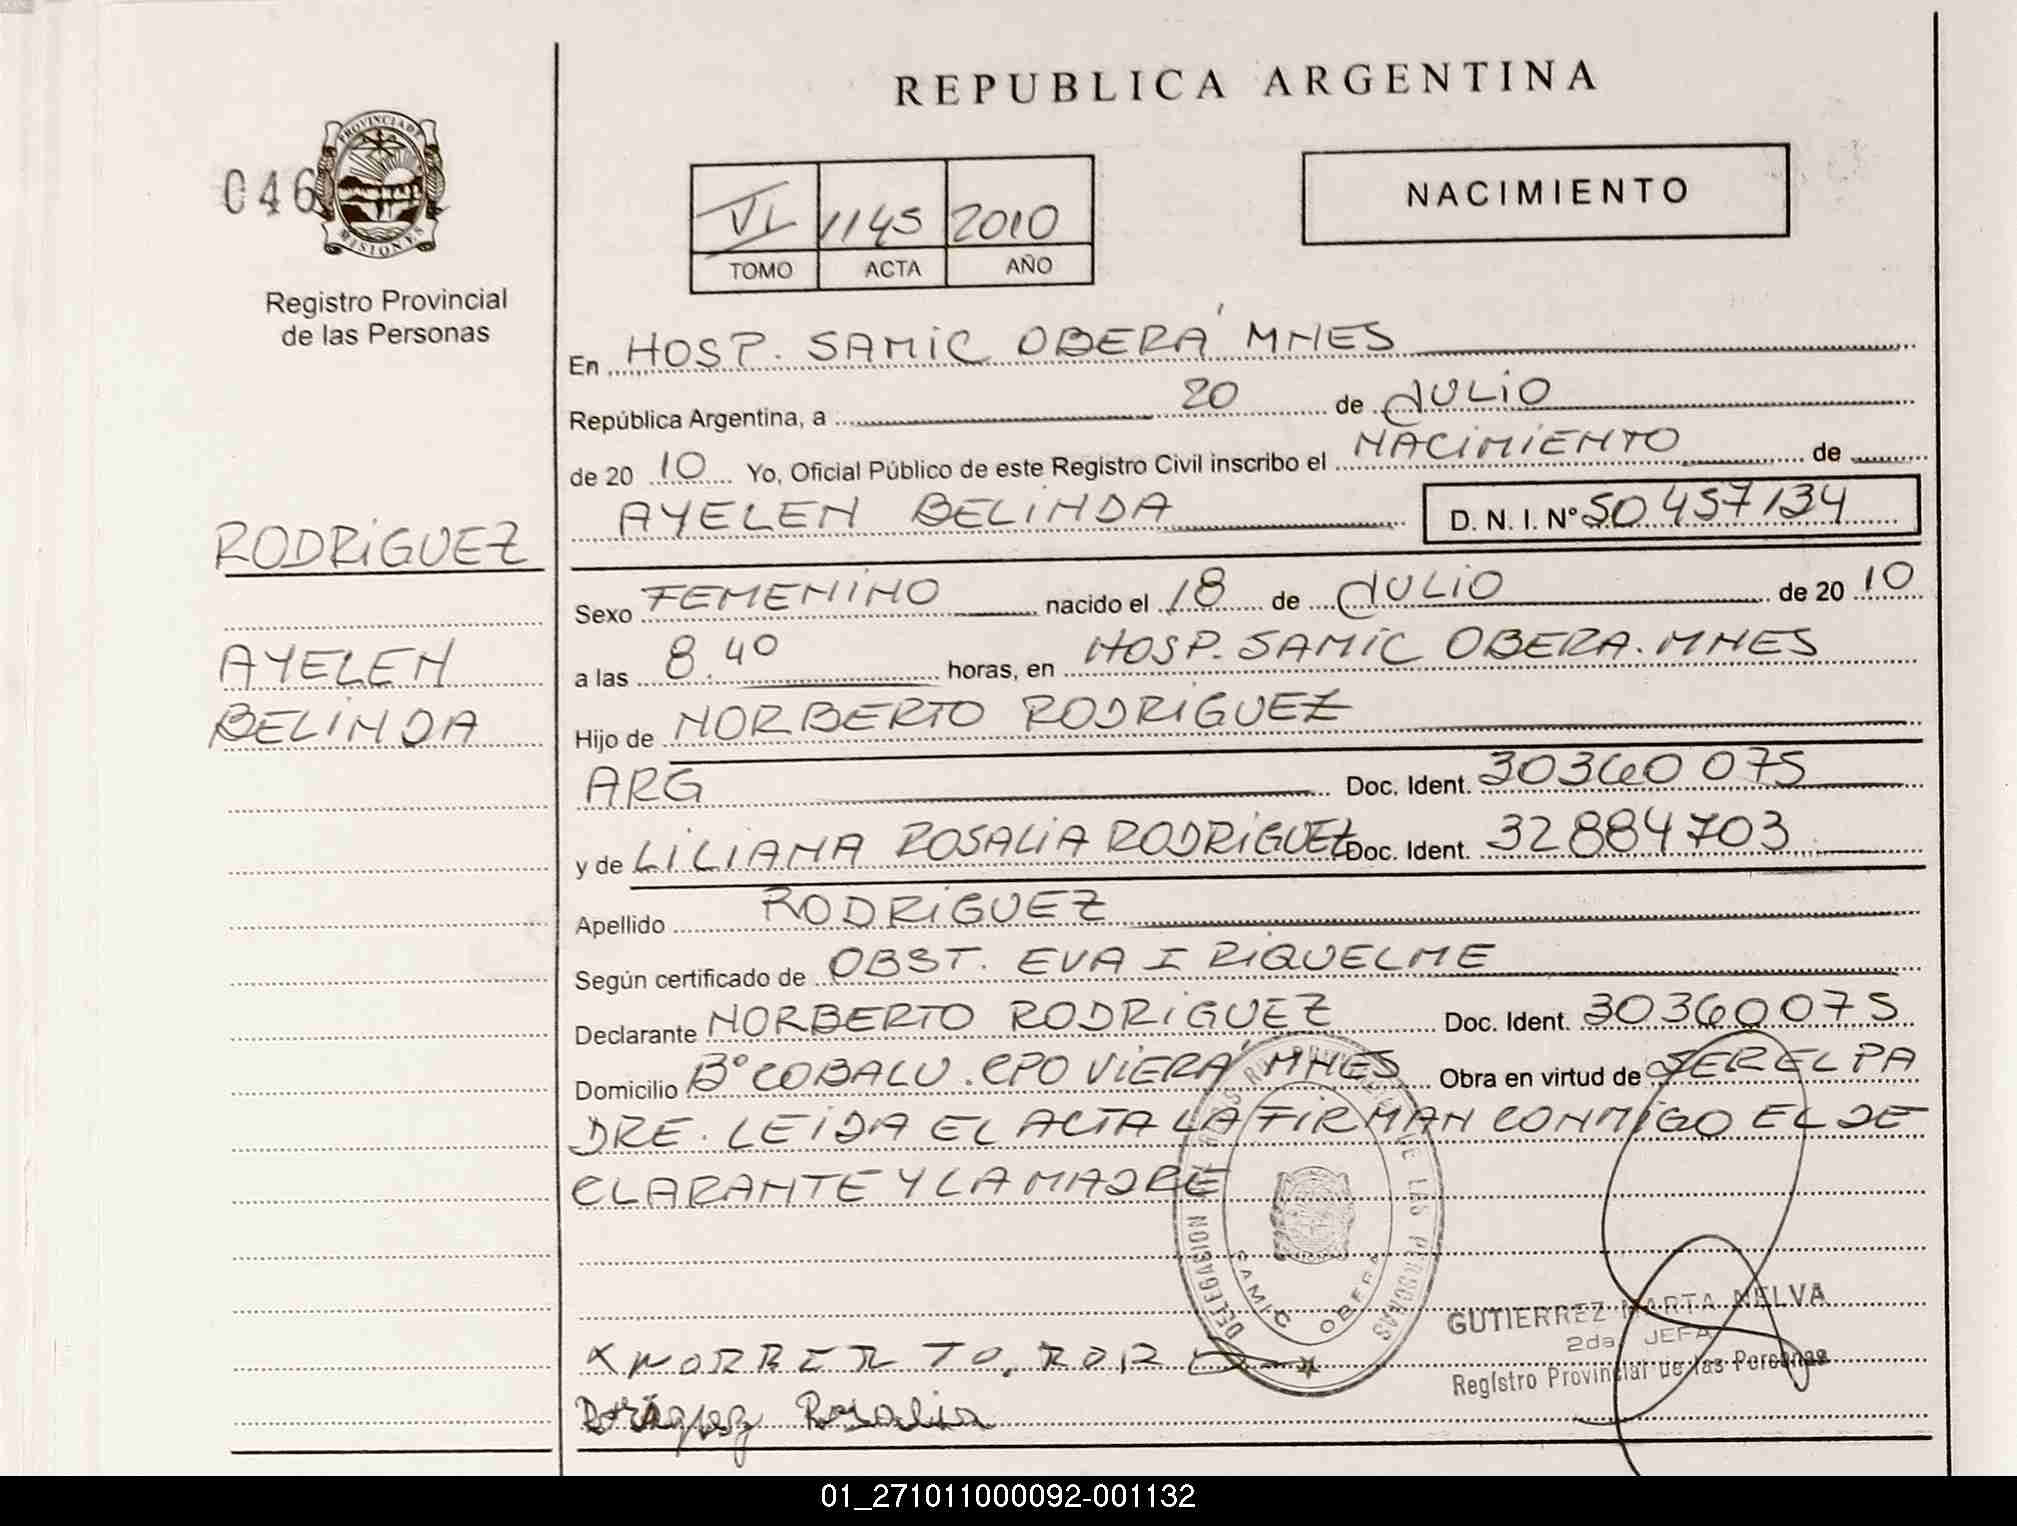 REPUBLICA ARGENTINA
046
PROVINCIA DE
MISIONES
Registro Provincial
de las Personas
VI 1145 2010
TOMO ACTA AÑO
NACIMIENTO
En HOSP. SAMIC OBERÁ MNES
República Argentina, a 20 de JULIO
de 20 10 Yo, Oficial Público de este Registro Civil inscribo el NACIMIENTO de
AYELEN BELINDA D. N. I. Nº 50 457134
RODRIGUEZ
AYELEN
BELINDA
Sexo FEMENINO nacido el 18 de JULIO de 20 10
a las 8.40 horas, en HOSP. SAMIC OBERA. MNES
Hijo de NORBERTO RODRIGUEZ
ARG Doc. Ident. 30360075
y de LILIANA ROSALIA RODRIGUEZ Doc. Ident. 32884703
Apellido RODRIGUEZ
Según certificado de OBST. EVA I RIQUELME
Declarante NORBERTO RODRIGUEZ Doc. Ident. 30360075
Domicilio Bº COBALU. CPO VIERA MNES Obra en virtud de SER EL PA
DRE. LEIDA EL ACTA LA FIRMAN CONMIGO EL DE
CLARANTE Y LA MADRE
DELEGACION
DE LAS PERSONAS
SAMIC OBERA
GUTIERREZ MARTA NELVA
2da. JEFA
Registro Provincial de las Personas
X NORBERTO. ROD
Rosalia
01_271011000092-001132